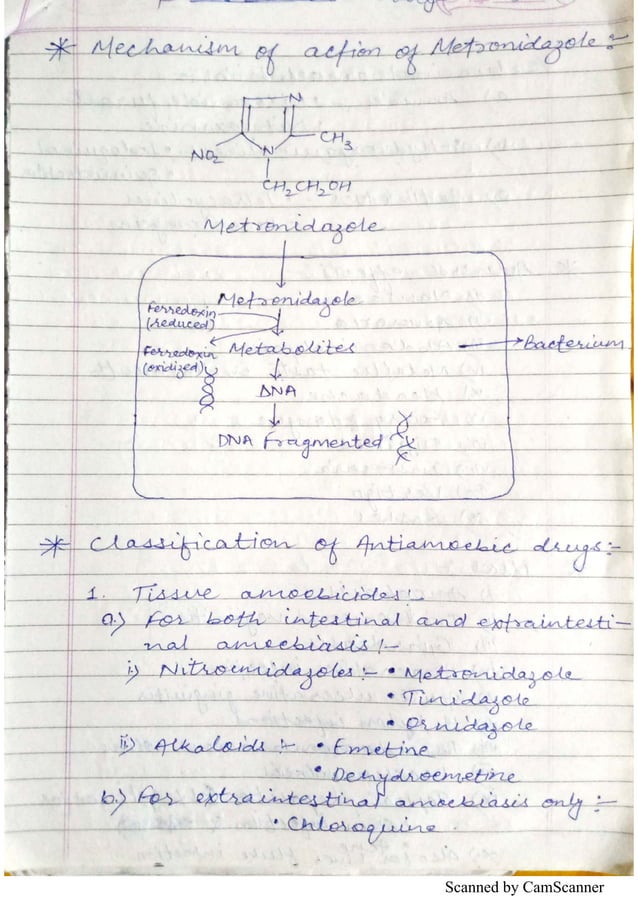 * Mechanism of action of Metronidazole:-
N
NO2
N
CH3
CH2CH2OH
Metronidazole
Metronidazole
Ferredoxin
(reduced)
Ferredoxin
(oxidized)
Metabolites
Bacterium
DNA
DNA Fragmented
* Classification of Antiamoebic drugs:-
1. Tissue amoebicides:-
a.) For both intestinal and extraintesti-
nal amoebiasis:-
i) Nitroemidazoles:- • Metronidazole
• Tinidazole
• Ornidazole
ii) Alkaloids:- • Emetine
• Dehydroemetine
b.) For extraintestinal amoebiasis only:-
• Chloroquine
Scanned by CamScanner